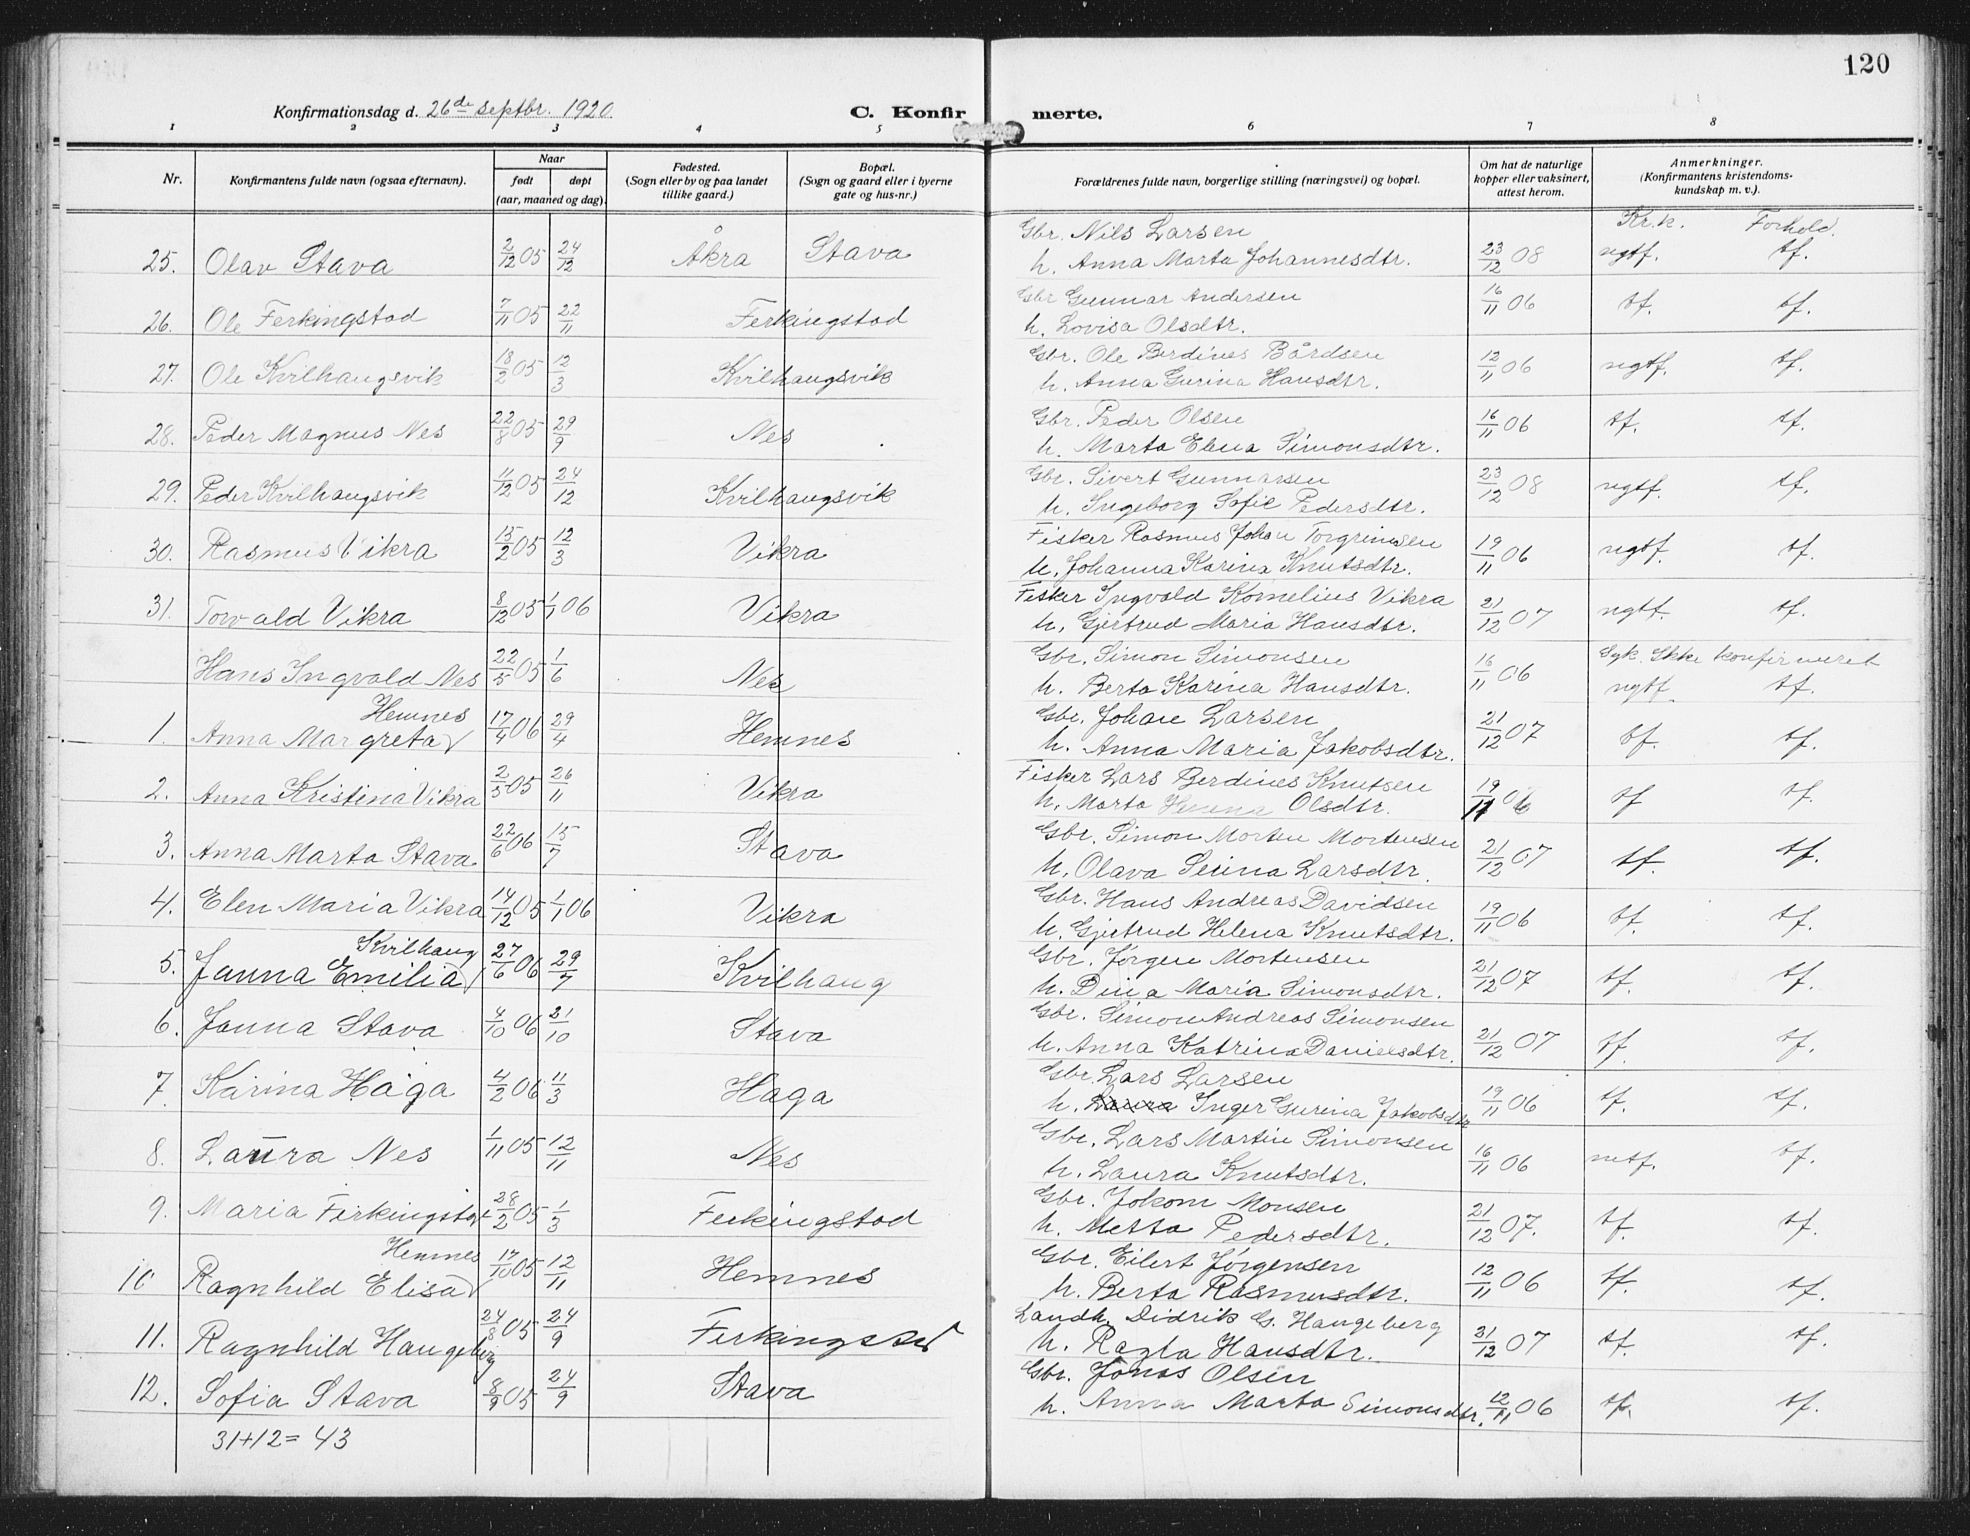 120
Konfirmationsdag d. 26de septbr. 1920. C. Konfirmerte.
1 2 3 4 5 6 7 8
Nr. Konfirmantens fulde navn (ogsaa efternavn). Naar født døpt (aar, maaned og dag). Fødested. (Sogn eller by og paa landet tillike gaard.) Bopæl. (Sogn og gaard eller i byerne gate og hus-nr.) Forældrenes fulde navn, borgerlige stilling (næringsvei) og bopæl. Om hat de naturlige kopper eller vaksinert, attest herom. Anmerkninger. (Konfirmantens kristendomskundskap m. v.).
Kr.k. Forhold.
25. Olav Stava 2/12 05 24/12 Åkra Stava Gbr. Nils Larsen
h. Anna Marta Johannesdtr. 23/12 08 ngtf. tf.
26. Ole Ferkingstad 7/11 05 22/11 Ferkingstad Gbr Gunnar Andersen
h. Lovisa Olsdtr. 16/11 06 tf. tf.
27. Ole Kvilhaugsvik 18/2 05 12/3 Kvilhaugsvik Gbr. Ole Berdines Bårdsen
h. Anna Gurina Hansdtr. 12/11 06 ngtf. tf.
28. Peder Magnus Nes 22/8 05 29/9 Nes Gbr. Peder Olsen
h. Marta Elena Simonsdtr. 16/11 06 tf. tf.
29. Peder Kvilhaugsvik 11/12 05 24/12 Kvilhaugsvik Gbr. Sivert Gunnarsen
h. Ingeborg Sofie Pedersdtr. 23/12 08 ngtf. tf.
30. Rasmus Vikra 15/2 05 12/3 Vikra Fisker Rasmus Johan Torgrimsen
h. Johanna Karina Knutsdtr. 19/11 06 ngtf. tf.
31. Torvald Vikra 8/12 05 1/1 06 Vikra Fisker Ingvald Kornelius Vikra
h. Gjertrud Maria Hansdtr. 21/12 07 ngtf. tf.
Hans Ingvald Nes 22/5 05 1/6 Nes Gbr. Simon Simonsen Syk. Ikke konfirmeret
h. Berta Karina Hansdtr. 16/11 06 ngtf. tf.
1. Anna Margreta Hemnes 17/4 06 29/4 Hemnes Gbr. Johan Larsen
h. Anna Maria Jakobsdtr. 21/12 07 tf. tf.
2. Anna Kristina Vikra 2/5 05 26/11 Vikra Fisker Lars Berdines Knutsen
h. Marta Olsdtr. 19/11 06 tf tf.
3. Anna Marta Stava 22/6 06 15/7 Stava Gbr. Simon Morten Mortensen
h. Olava Serina Larsdtr. 21/12 07 tf. tf.
4. Elen Maria Vikra 14/12 05 1/1 06 Vikra Gbr. Hans Andreas Davidsen
h. Gjertrud Helena Knutsdtr. 19/11 06 tf. tf.
5. Janna Emilia Kvilhaug 27/6 06 29/7 Kvilhaug Gbr. Jørgen Mortensen
h. Dina Maria Simonsdtr. 21/12 07 tf. tf.
6. Janna Stava 4/10 06 21/10 Stava Gbr. Simon Andreas Simonsen
h. Anna Katrina Danielsdtr. 21/12 07 tf. tf.
7. Karina Håga 4/2 06 11/3 Haga Gbr. Lars Larsen
h. Laura Inger Gurina Jakobsdtr 19/11 06 tf. tf.
8. Laura Nes 1/11 05 12/11 Nes Gbr. Lars Martin Simonsen
h. Laura Knutsdtr. 16/11 06 mtf. tf.
9. Maria Ferkingstad 28/2 05 1/3 Ferkingstad Gbr. Jokom Monsen
h. Metta Pedersdtr. 21/12 07. tf. tf.
10 Ragnhild Elisa Hemnes 17/10 05 12/11 Hemnes Gbr. Eilert Jørgensen
h. Berta Rasmusdtr. 12/11 06 tf. tf.
11. Ragnhild Haugeberg 24/8 05 24/9 Ferkingstad Landh. Didrik G. Haugeberg
h. Ragla Hansdtr. 21/12 07 tf. tf.
12. Sofia Stava 8/9 05 24/9 Stava Gbr. Jonas Olsen
h. Anna Marta Simonsdtr. 12/11 06 tf. tf.
31+12= 43